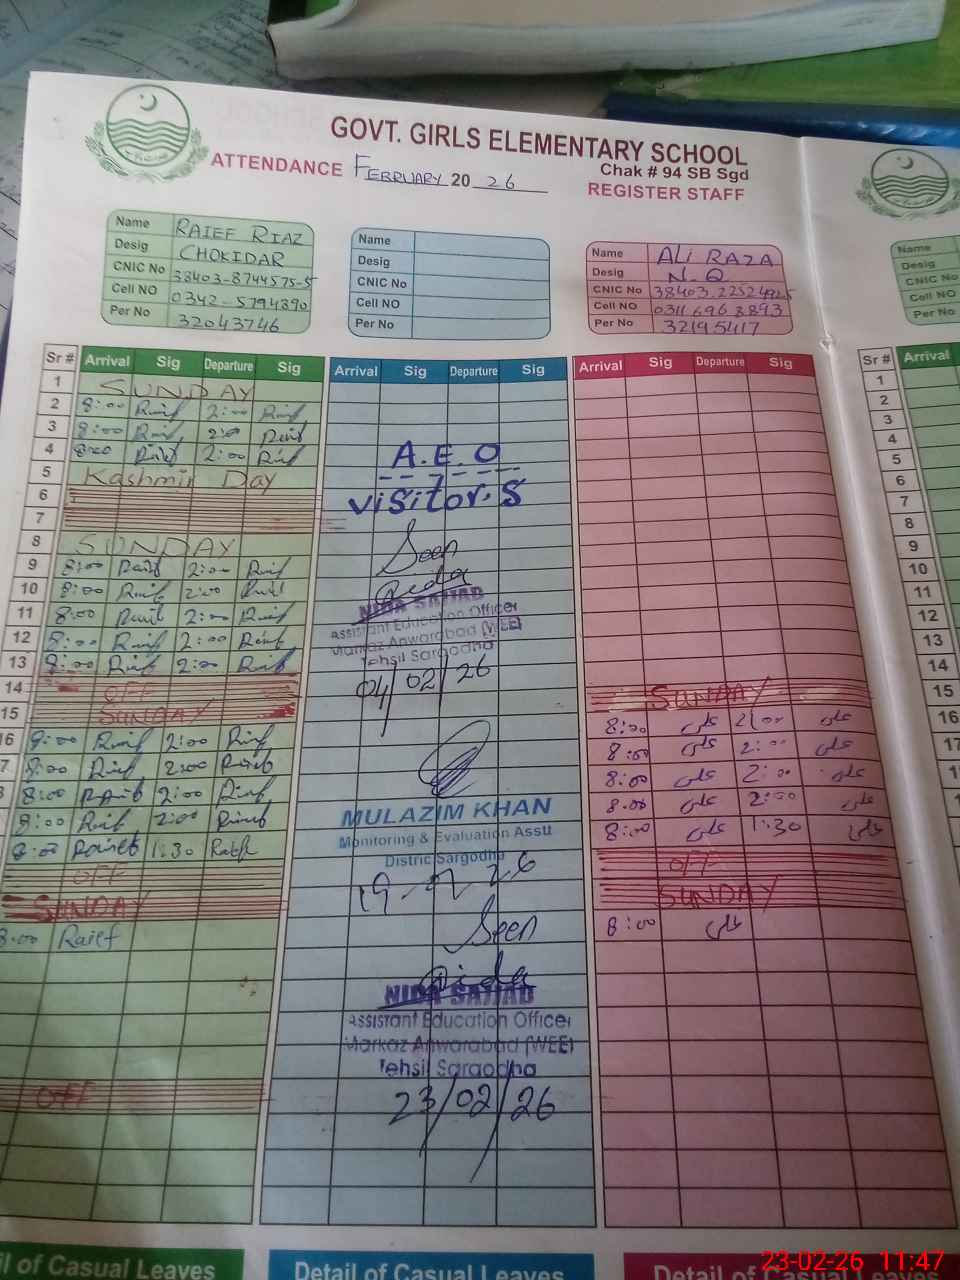 GOVT. GIRLS ELEMENTARY SCHOOL
Chak # 94 SB Sgd
ATTENDANCE FEBRUARY 2026
REGISTER STAFF
Name RAIEF RIAZ
Desig CHOKIDAR
CNIC No 38403-8744575-5
Cell NO 0342-5794890
Per No 32043746
Name
Desig
CNIC No
Cell NO
Per No
Name ALI RAZA
Desig N.Q
CNIC No
Cell NO
Per No 32195417
Name
Desig
CNIC No
Cell NO
Per No
Sr # Arrival Sig Departure Sig Arrival Sig Departure Sig Arrival Sig Departure Sig Sr # Arrival
1 SUNDAY 1
2 8:00 Raief 2:00 Raief 2
3 8:00 Raief 2:00 Raief 3
4 8:00 Raief 2:00 Raief A.E.O 4
5 Kashmir Day 5
6 visitor.s 6
7 7
8 SUNDAY Seen 8
9 8:00 Raief 2:00 Raief 9
10 8:00 Raief 2:00 Raief NIDA SAJJAD 10
11 8:00 Raief 2:00 Raief Assistant Education Officer 11
12 8:00 Raief 2:00 Raief Markaz Anwarabad (WEE) 12
13 8:00 Raief 2:00 Raief Tehsil Sargodha 13
14 OFF 04/02/26 14
15 SUNDAY SUNDAY 15
16 8:00 Raief 2:00 Raief 8:00 علی 2:00 علی 16
7 8:00 Raief 2:00 Raief 8:00 علی 2:00 علی 17
8:00 Raief 2:00 Raief 8:00 علی 2:00 علی
8:00 Raief 2:00 Raief MULAZIM KHAN 8:00 علی 2:00 علی
8:00 Raief 1:30 Raief Monitoring & Evaluation Asstt 8:00 علی 1:30 علی
OFF Distric Sargodha OFF
SUNDAY SUNDAY
8:00 Raief Seen 8:00 علی
NIDA SAJJAD
Assistant Education Officer
Markaz Anwarabad (WEE)
Tehsil Sargodha
OFF 23/02/26
il of Casual Leaves Detail of Casual Leaves Detail of Casual Leaves
23-02-26 11:47